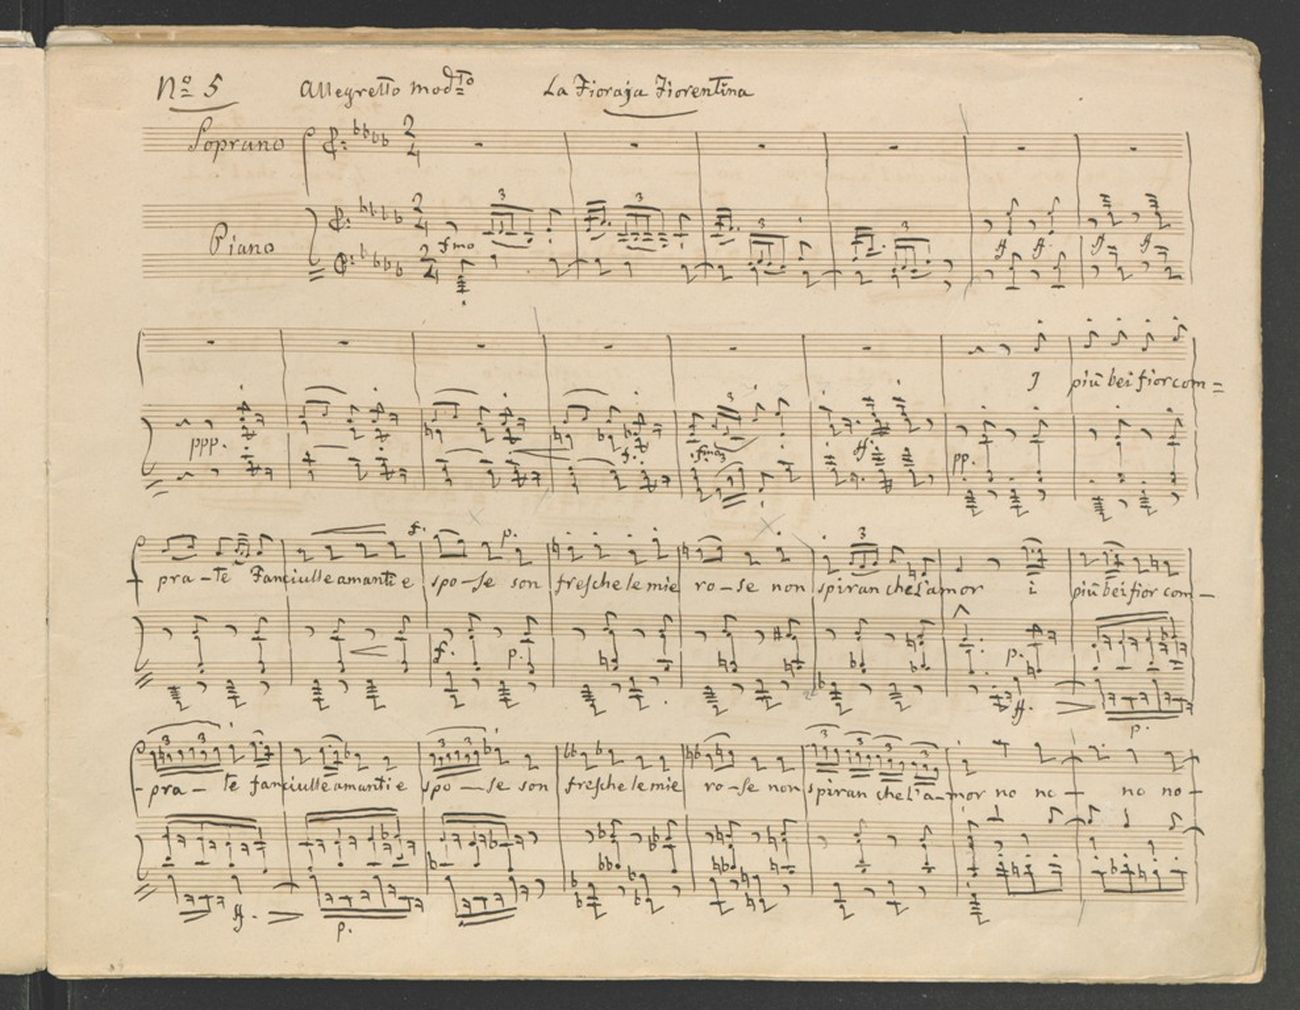 No 5 Allegretto modto La Fioraja Fiorentina
Soprano
2 4
3 3 3 3
Piano
2 4
fmo ff ff ff ff
2 4
I più bei fior com=
3
ppp. f. fmo 3 ff. pp.
f. p. 3
pra-te Fanciulle amanti e spo-se son fresche le mie ro-se non spiran che l'amor i più bei fior com-
f. p. p.
ff. p.
3 3 3 3 3 3 3 3
-pra-te fanciulle amanti e spo-se son fresche le mie ro-se non spiran che l'a-mor no no- no no-
ff. p.